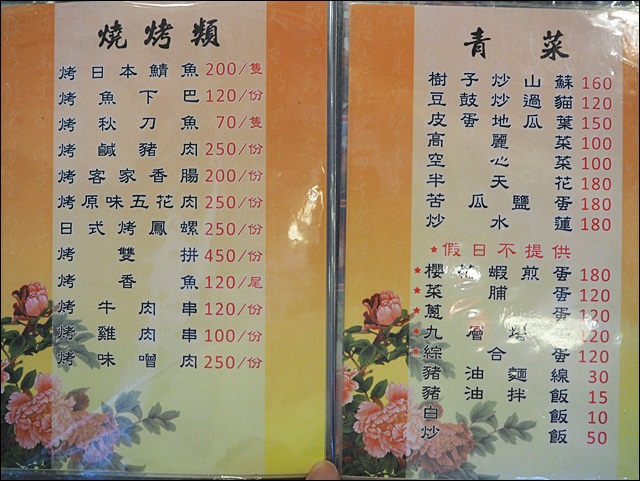 燒烤類
烤日本鯖魚 200/隻
烤魚下巴 120/份
烤秋刀魚 70/隻
烤鹹豬肉 250/份
烤客家香腸 200/份
烤原味五花肉 250/份
日式烤鳳螺 250/份
烤雙拼 450/份
烤香魚 120/尾
烤牛肉串 120/份
烤雞肉串 100/份
烤味噌肉 250/份
青菜
樹子炒山蘇 160
豆鼓炒過貓 120
皮蛋地瓜葉 150
高麗菜 100
空心菜 100
半天花 180
苦瓜鹽蛋 180
炒水蓮 180
★假日不提供
★櫻花蝦煎蛋 180
★菜脯蛋 120
★蔥蛋 120
★九層塔蛋 120
★綜合蛋 120
豬油麵線 30
豬油拌飯 15
白飯 10
炒飯 50